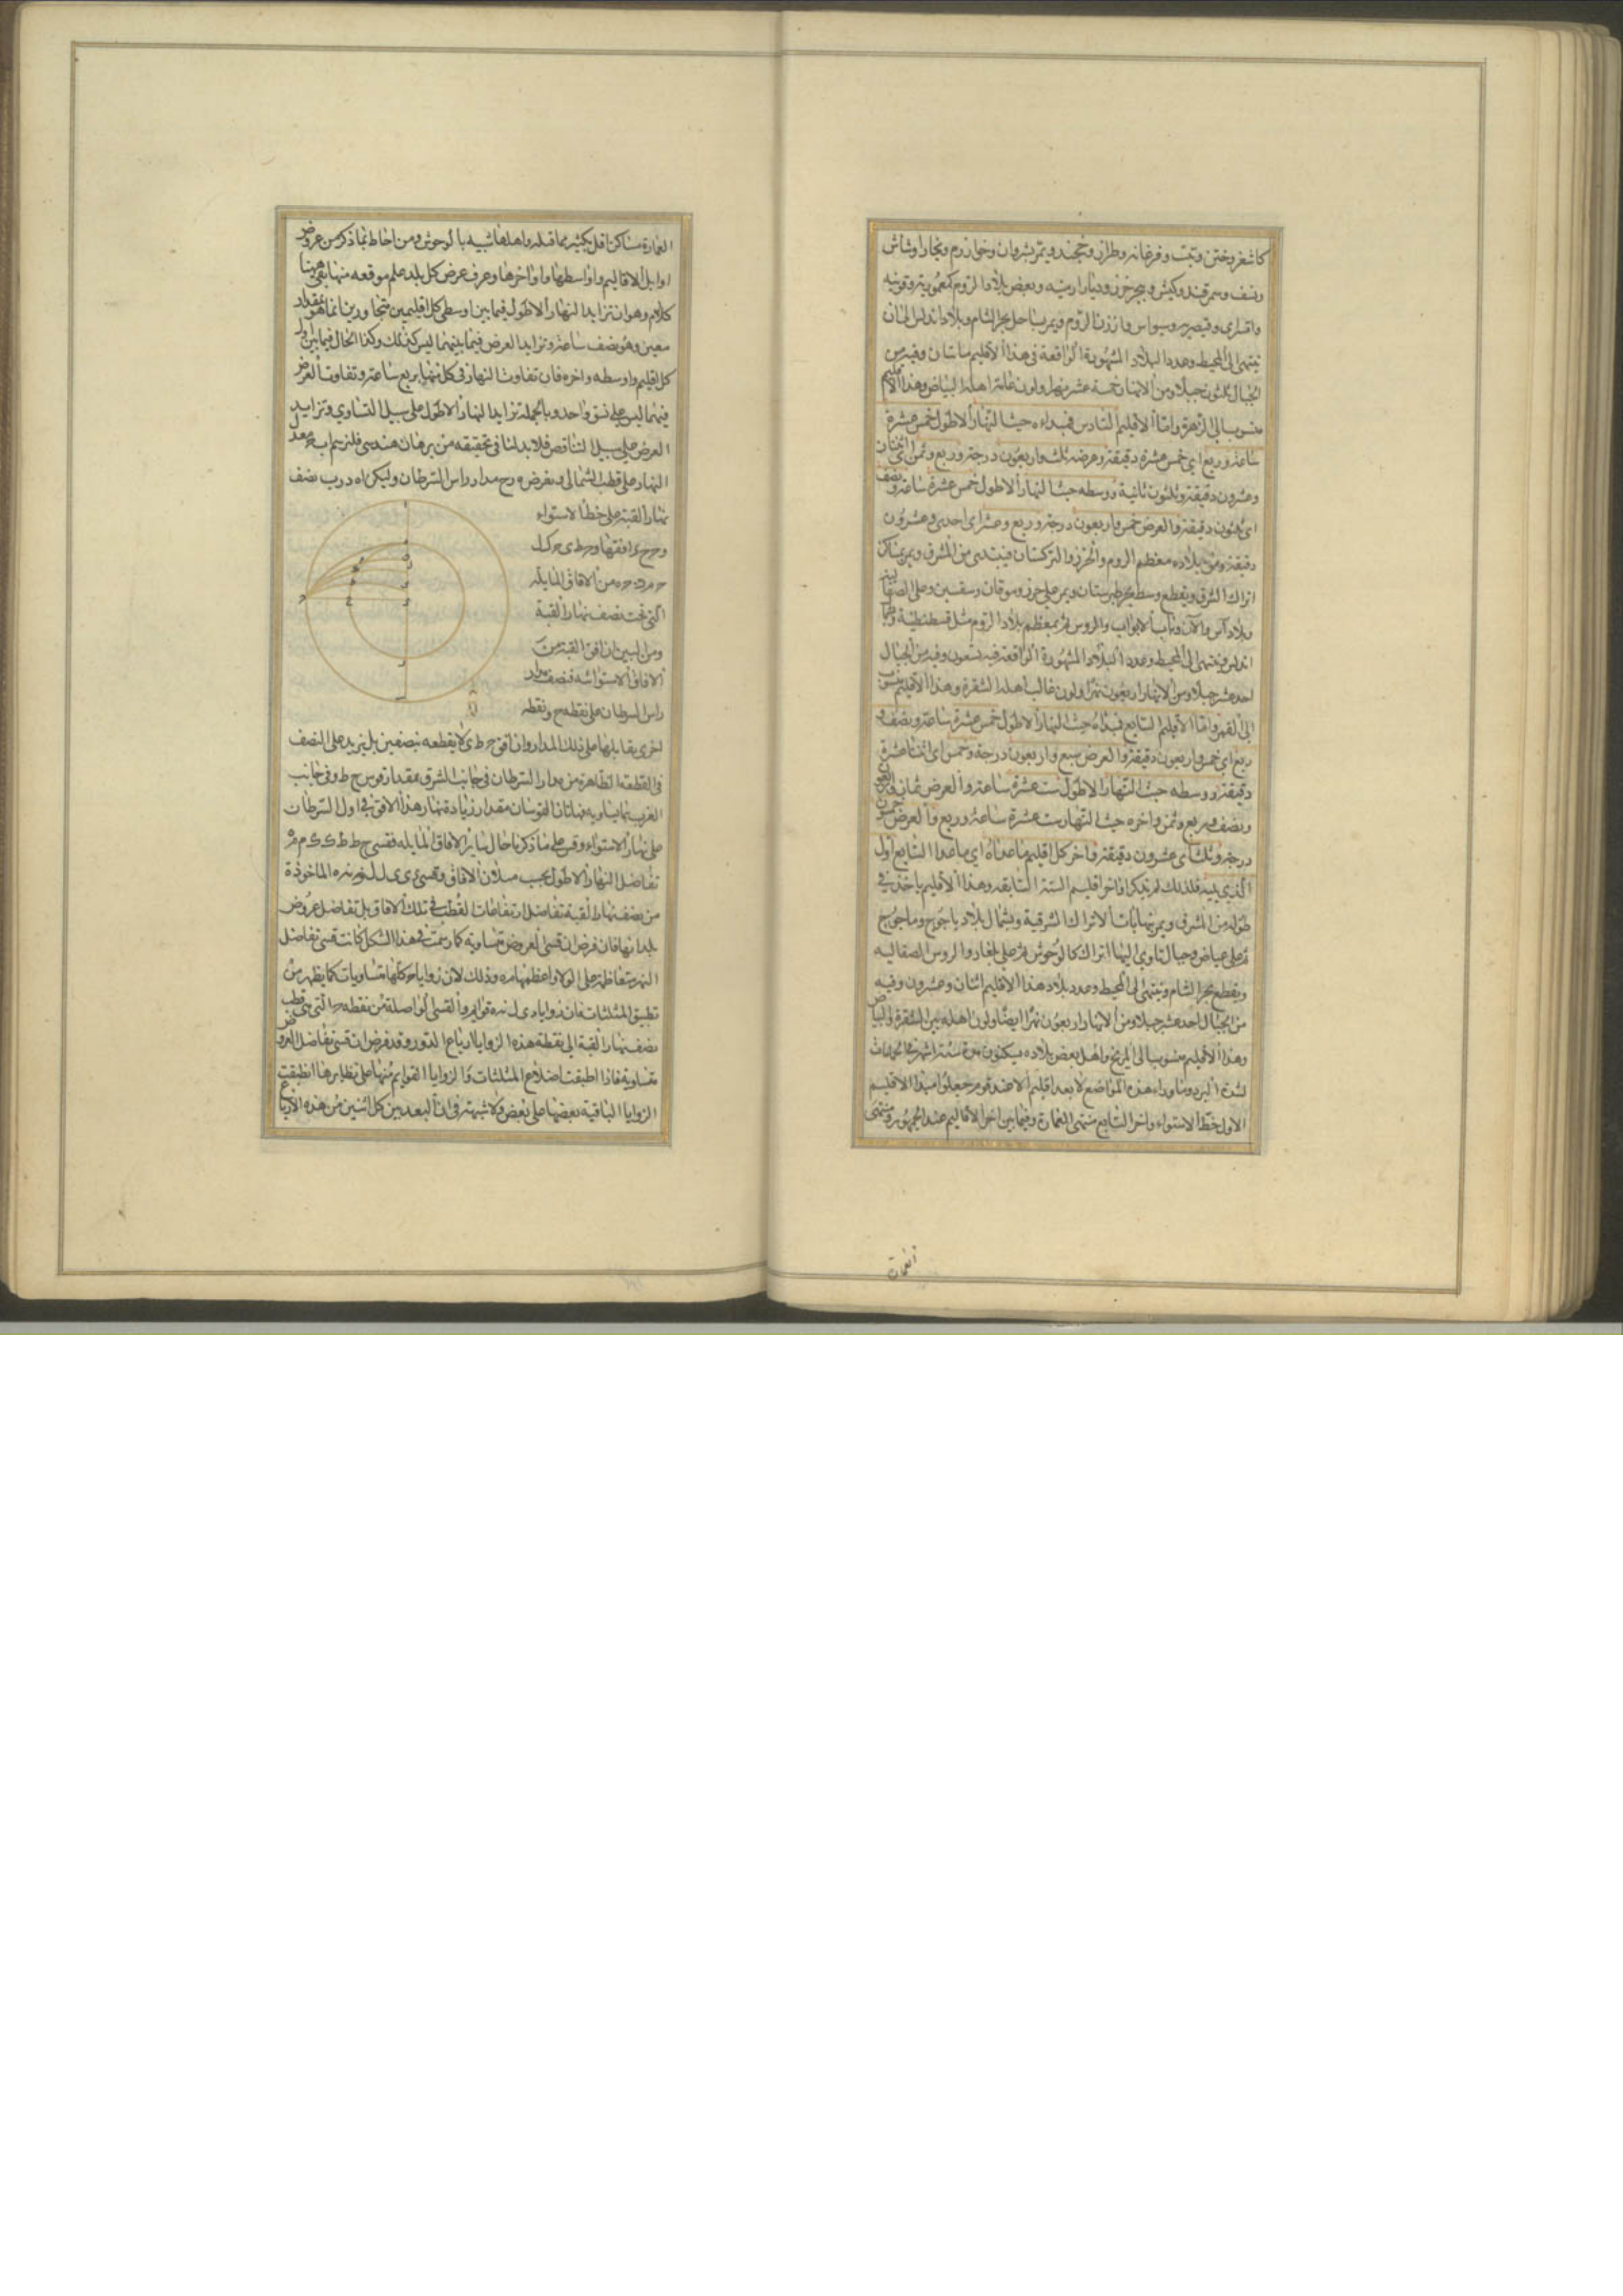 كاشغر وختن وتبت وفرغانه وطراز وخجند ويمر بشروان وخوارزم وبخارا وشاش
ونسف وسمرقند وكيش وبحر خزر وديار ارمنيه وبعض بلاد الروم كعمورية وقونيه
واقسراى وقيصريه وسيواس وارزن الروم ويمر بساحل بحر الشام وبلاد اندلس الى ان
ينتهى الى المحيط وعدد البلاد المشهورة الواقعة فى هذا الاقليم مائتان وفيه من
الجبال ثلثون جبلا ومن الانهار خمسة عشر نهرا ولون عامة اهله البياض وهذا الاقليم
منسوب الى الزهرة واما الاقليم السادس فمبداءه حيث النهار الاطول خمس عشرة
ساعة وربع اى خمس عشرة دقيقة وعرضه ثلث واربعون درجة وربع وثمن اى اثنتان
وعشرون دقيقة وثلثون ثانية ووسطه حيث النهار الاطول خمس عشرة ساعة ونصف
اى ثلثون دقيقة والعرض خمس واربعون درجة وربع وعشر اى احدى وعشرون
دقيقة ومن بلاده معظم الروم والخزر والتركستان فيبتدى من المشرق ويمر بمساكن
اتراك الشرق ويقطع وسط بحر طبرستان ويمر على خزر وموقان وسقسين وعلى الصقالبه
وبلاد آس والآن وباب الابواب والروس ثم بمعظم بلاد الروم مثل قسطنطنية و
اندلس وينتهى الى المحيط وعدد البلاد المشهورة الواقعة فيه تسعون وفيه من الجبال
احد عشر جبلا ومن الانهار اربعون نهرا ولون غالب اهله الشقرة وهذا الاقليم منسوب
الى القمر واما الاقليم السابع فمبداءه حيث النهار الاطول خمس عشرة ساعة ونصف و
ربع اى خمس واربعون دقيقة والعرض سبع واربعون درجة وخمس اى اثنتا عشرة
دقيقة ووسطه حيث النهار الاطول ست عشرة ساعة والعرض ثمان واربعون
ونصف وربع وثمن واخره حيث النهار ست عشرة ساعة وربع والعرض خمسون
درجة وثلث اى عشرون دقيقة واخر كل اقليم ما عداه اى ما عدا السابع اول
الذى يليه فلذلك لم يذكر اواخر اقليم الستة السابقه وهذا الاقليم ياخذ فى
طوله من المشرق ويمر بنهايات الاتراك الشرقية وبشمال بلاد ياجوج وماجوج
ثم على غياض وجبال تاوى اليها اتراك كالوحوش ثم على بلغار والروس الصقالبه
ويقطع بحر الشام وينتهى الى المحيط وعدد بلاد هذا الاقليم اثنان وعشرون وفيه
من الجبال احد عشر جبلا ومن الانهار اربعون نهرا ايضا ولون اهله بين الشقرة والبياض
وهذا الاقليم منسوب الى المريخ واهل بعض بلاده يسكنون مدة ستة اشهر فى الحمامات
لشدة البرد وما وراء هذه المواضع لا يعد اقليم الا عند قوم جعلوا مبدا الاقليم
الاول خط الاستواء واخر السابع منتهى العمارة وفيما بين اخر الاقاليم عند الجمهور ومنتهى
العمارة مساكن اقل بكثير مما قبله واهلها شبيه بالوحوش ومن احاط بما ذكر من عروض
اوايل الاقاليم واواسطها واواخرها وعرف عرض كل بلد علم موقعه منها بقى ههنا
كلام وهو ان تزايد النهار الاطول فيما بين اوسطى كل اقليمين متجاورين انما هو بمقدار
معين وهو نصف ساعة وتزايد العرض فيما بينهما ليس كذلك وكذا الحال فيما بين اول
كل اقليم واوسطه واخره فان تفاوت النهار فى كل منها بربع ساعة وتفاوت العرض
فيهما ليس على نسق واحد وبالجملة تزايد النهار الاطول على سبيل التساوى وتزايد
العرض على سبيل التناقص فلا بد لنا فى تحقيقه من برهان هندسى فلنرسم اب معدل
النهار على قطب الشمالى ونفرض ه رح مدار راس السرطان وليكن اه درب نصف
نهار القبة على خط الاستواء
و افقها
من الافاق المايله
التى تحت نصف نهار القبة
ومن البين ان افق القبة من
الافاق الاستوائيه فنصف مدار
راس السرطان على نقطه ح ونقطه
اخرى يقابلها على ذلك المدار وان افق لا يقطعه بنصفين بل يزيد على النصف
فى القطعة الظاهرة من مدار السرطان فى جانب المشرق بمقدار قوس ح ط وفى جانب
الغرب بما يساويه فهاتان القوسان مقدار زيادة نهار هذا الافق فى اول السرطان
على نهار الاستواء وقس على ما ذكرنا حال ساير الافاق المايله فقسى
تفاضل النهار الاطول بحسب ميلان الافاق وقسى الماخوذة
من نصف نهار القبة تفاضل ارتفاعات القطب فى تلك الافاق بل تفاضل عروض
بلدانها فان فرض ان قسى العروض متساوية كما رسمت فى هذا الشكل كانت قسى تفاضل
النهر متعاظمة على الولا واعظمها وذلك لان زوايا كلها متساويات كما يظهر من
تطبيق المثلثات فان زوايا قوايم والقسى الواصلة من نقطه التى هى قطب
نصف نهار القبة الى نقطة هذه الزوايا ارباع الدور وقد فرض ان قسى تفاضل العروض
متساوية فاذا اطبقت اضلاع المثلثات والزوايا القوايم منها على نظايرها انطبقت
الزوايا الباقية بعضها على بعض ولا شبهة فى ان البعد بين كل اثنين من هذه الارباع